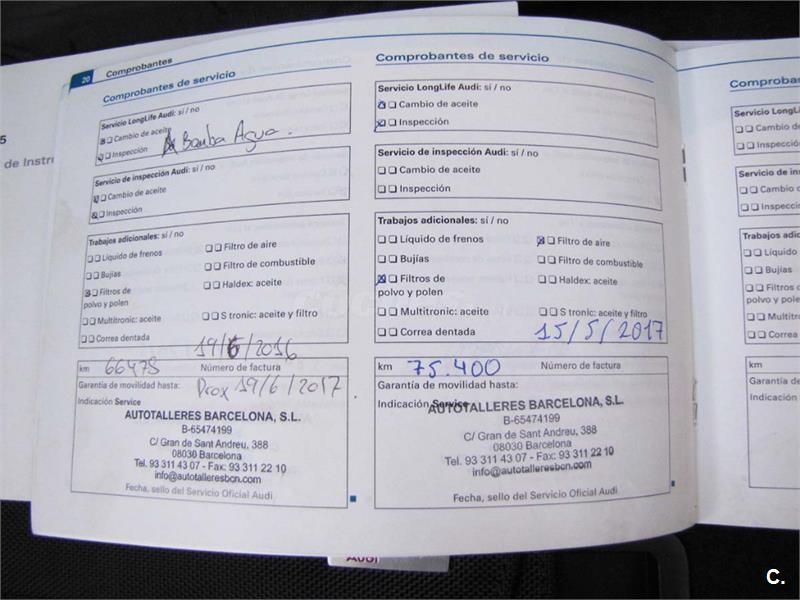 20
Comprobantes
Comprobantes de servicio
Servicio LongLife Audi: sí / no
Cambio de aceite
Inspección
Bomba Agua.
Servicio de inspección Audi: sí / no
Cambio de aceite
Inspección
Trabajos adicionales: sí / no
Líquido de frenos
Filtro de aire
Bujías
Filtro de combustible
Filtros de
polvo y polen
Haldex: aceite
Multitronic: aceite
S tronic: aceite y filtro
Correa dentada
19/6/2016
km 66478
Número de factura
Garantía de movilidad hasta: Prox 19/6/2017
Indicación Service
AUTOTALLERES BARCELONA, S.L.
B-65474199
C/ Gran de Sant Andreu, 388
08030 Barcelona
Tel. 93 311 43 07 - Fax: 93 311 22 10
info@autotalleresbcn.com
Fecha, sello del Servicio Oficial Audi
Comprobantes de servicio
Servicio LongLife Audi: sí / no
Cambio de aceite
Inspección
Servicio de inspección Audi: sí / no
Cambio de aceite
Inspección
Trabajos adicionales: sí / no
Líquido de frenos
Filtro de aire
Bujías
Filtro de combustible
Filtros de
polvo y polen
Haldex: aceite
Multitronic: aceite
S tronic: aceite y filtro
Correa dentada
15/5/2017
km 75.400
Número de factura
Garantía de movilidad hasta:
Indicación Service
AUTOTALLERES BARCELONA, S.L.
B-65474199
C/ Gran de Sant Andreu, 388
08030 Barcelona
Tel. 93 311 43 07 - Fax: 93 311 22 10
info@autotalleresbcn.com
Fecha, sello del Servicio Oficial Audi
5
de Instru
Comproba
Servicio LongLife
Cambio de
Inspección
Servicio de in
Cambio de
Inspección
Trabajos adici
Líquido de
Bujías
Filtros de
polvo y polen
Multitronic
Correa den
km
Garantía de mo
Indicación Serv
Audi
C.